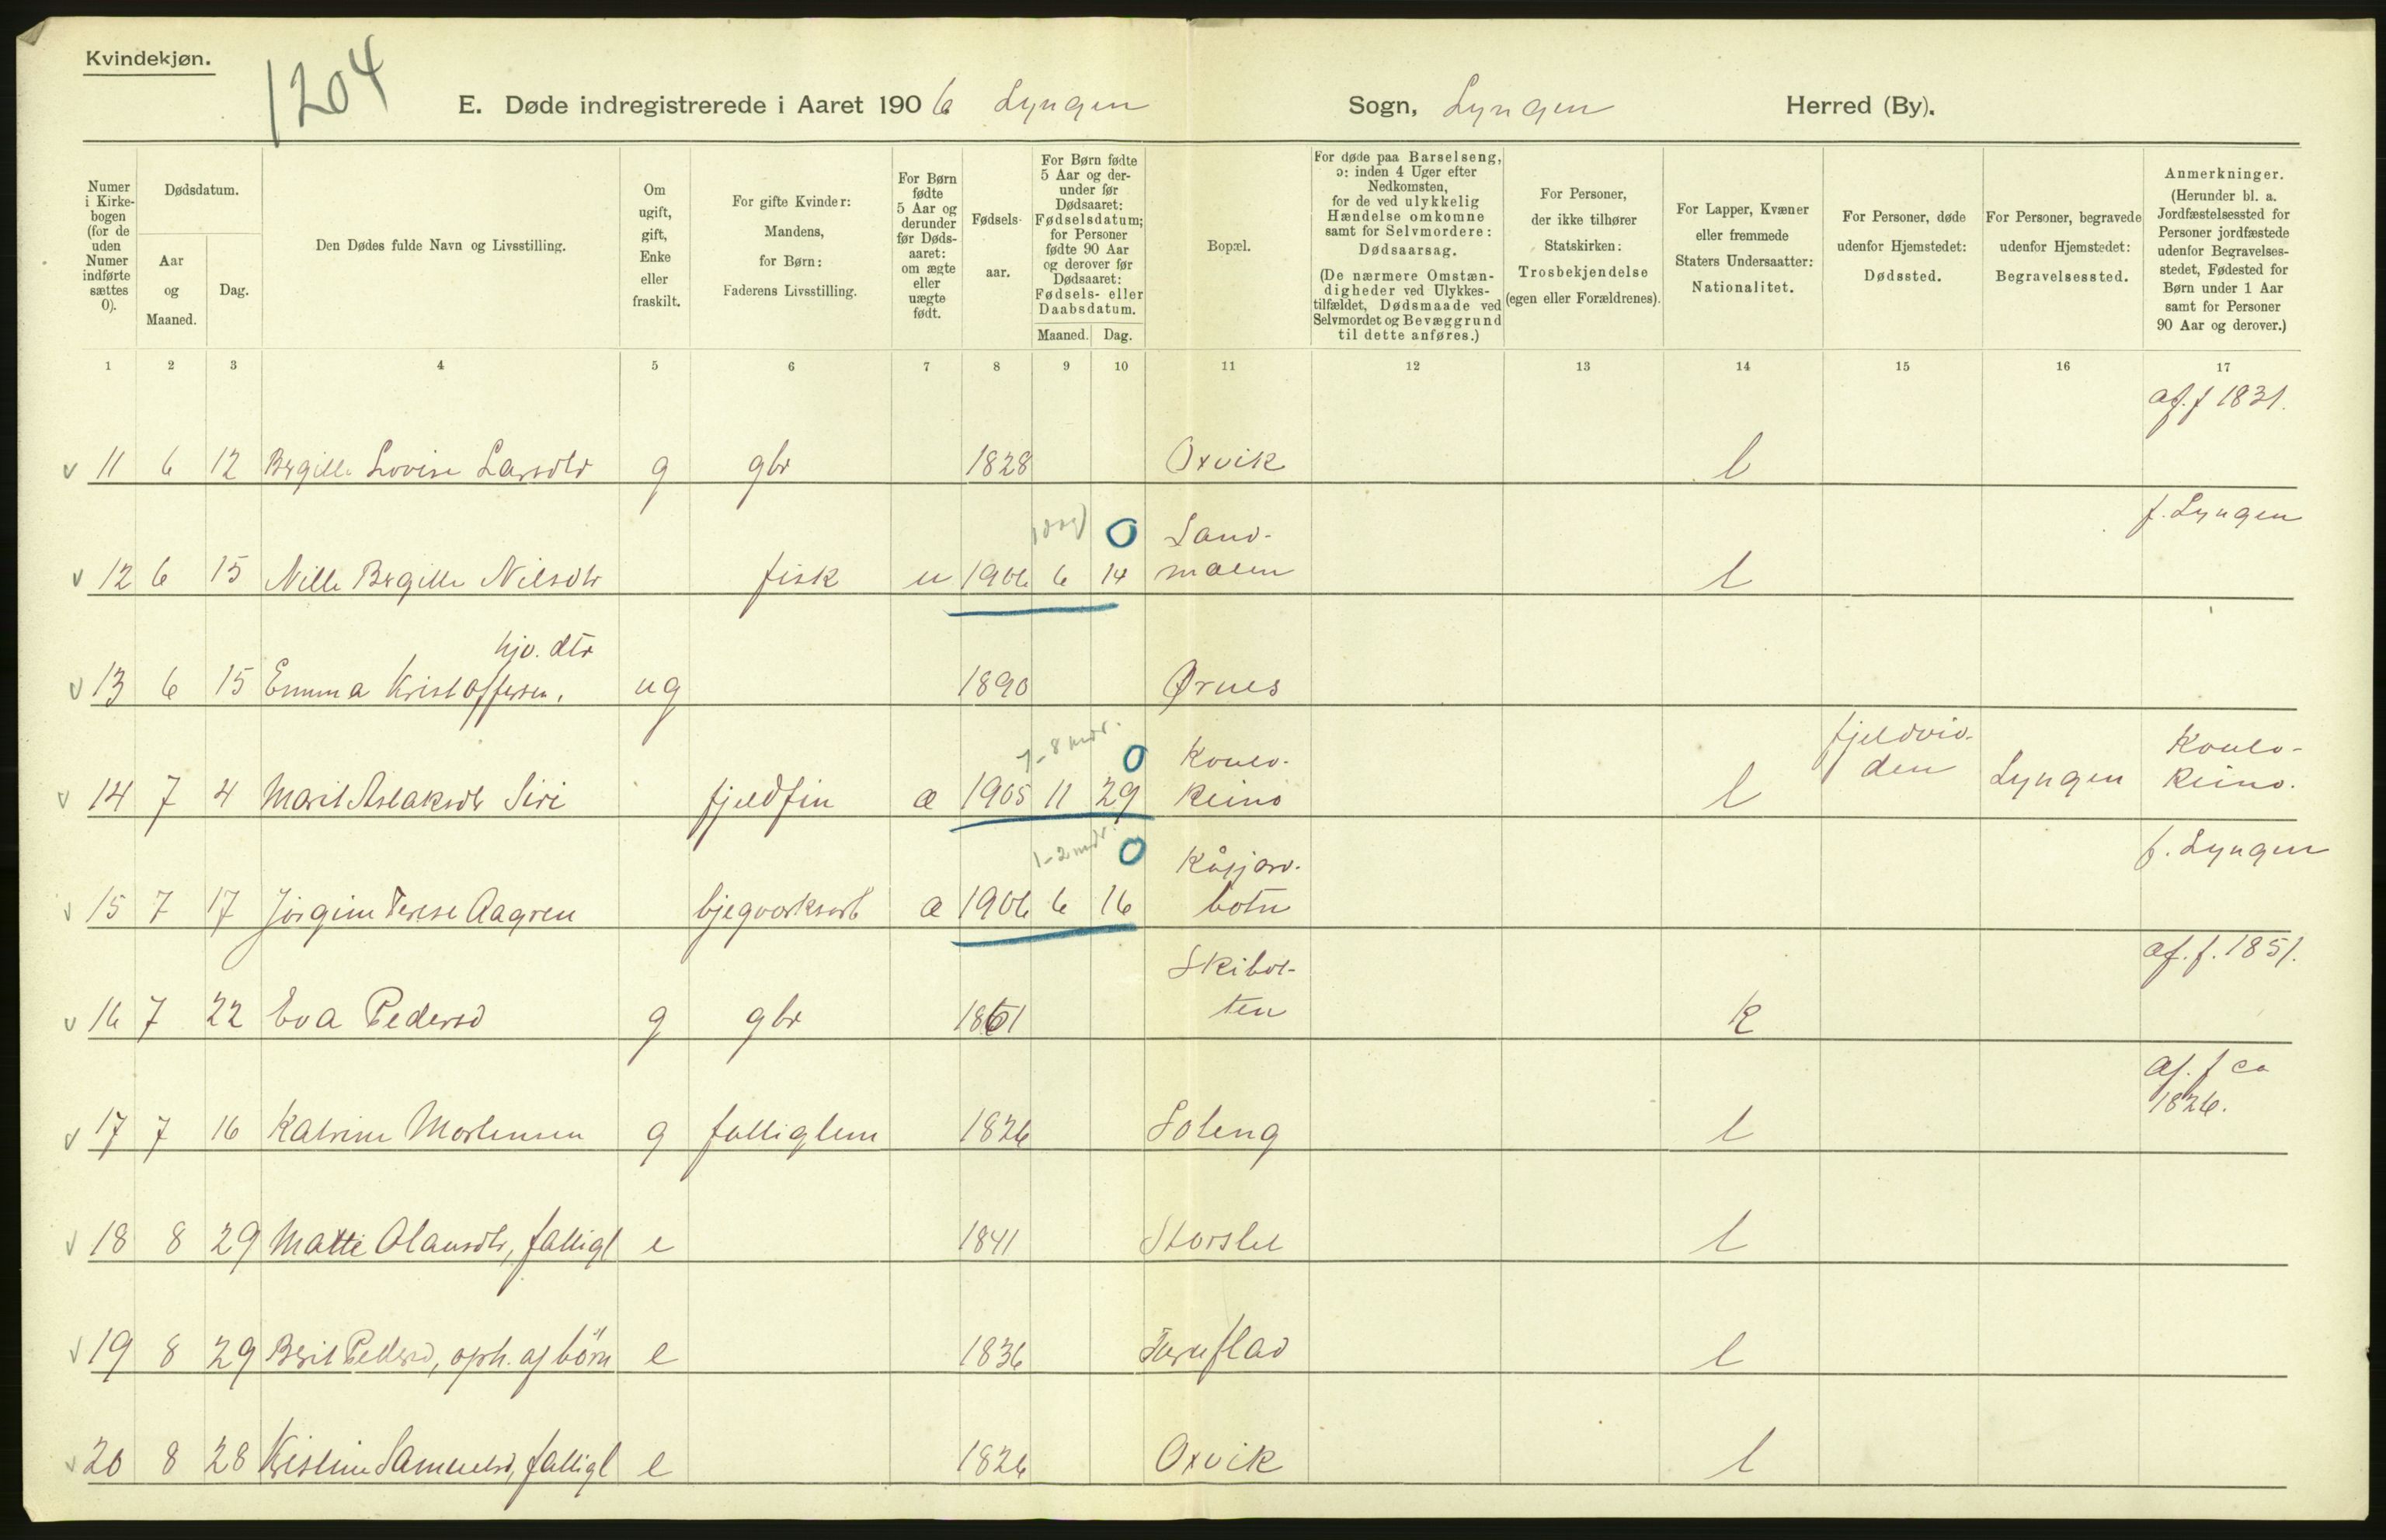 Kvindekjøn.
1204
E. Døde indregistrerede i Aaret 1906 Lyngen Sogn, Lyngen Herred (By).
Numer i Kirkebogen (for de uden Numer indførte sættes 0).
Dødsdatum.
Aar og Maaned.
Dag.
Den Dødes fulde Navn og Livsstilling.
Om ugift, gift, Enke eller fraskilt.
For gifte Kvinder: Mandens, for Børn: Faderens Livsstilling.
For Børn fødte 5 Aar og derunder før Dødsaaret: om ægte eller uægte født.
Fødselsaar.
For Børn fødte 5 Aar og derunder før Dødsaaret: Fødselsdatum; for Personer fødte 90 Aar og derover før Dødsaaret: Fødsels- eller Daabsdatum.
Maaned. Dag.
Bopæl.
For døde paa Barselseng, ɔ: inden 4 Uger efter Nedkomsten, for de ved ulykkelig Hændelse omkomne samt for Selvmordere: Dødsaarsag. (De nærmere Omstændigheder ved Ulykkestilfældet, Dødsmaade ved Selvmordet og Bevæggrund til dette anføres.)
For Personer, der ikke tilhører Statskirken: Trosbekjendelse (egen eller Forældrenes).
For Lapper, Kvæner eller fremmede Staters Undersaatter: Nationalitet.
For Personer, døde udenfor Hjemstedet: Dødssted.
For Personer, begravede udenfor Hjemstedet: Begravelsessted.
Anmerkninger. (Herunder bl. a. Jordfæstelsessted for Personer jordfæstede udenfor Begravelsesstedet, Fødested for Børn under 1 Aar samt for Personer 90 Aar og derover.)
1 2 3 4 5 6 7 8 9 10 11 12 13 14 15 16 17
af. f 1831.
11 6 12 Birgille Lovise Larsdtr g gbr 1828 Oxvik l
f. Lyngen
1 dag 0 Sand-
12 6 15 Nille Birgille Nilsdtr fisk u 1906 6 14 malen l
hjv. dtr
13 6 15 Emma Kristoffersen, ug 1890 Ørnes
7-8 mdr. 0 Koulo- fjeldvid- Koulo-
14 7 4 Marit Aslaksdtr Siri fjeldfin æ 1905 11 29 keino l den Lyngen keino.
1-2 mdr. 0 Kåfjord- f. Lyngen
15 7 17 Jörgine Terese Aagren bjegverksarb æ 1906 6 16 botn
Skibot- af. f. 1851.
16 7 22 Eva Pedersd g gbr 1861 ten k
af. f ca
1826.
17 7 16 Katrine Mortensen g fattiglem 1826 Soleng l
18 8 29 Matte Olausdtr, fattigl e 1841 Storslet l
19 8 29 Berit Pedersd, oph. af börn e 1836 l
20 8 28 Kristine Samuelsd, fattigl e 1826 Oxvik l